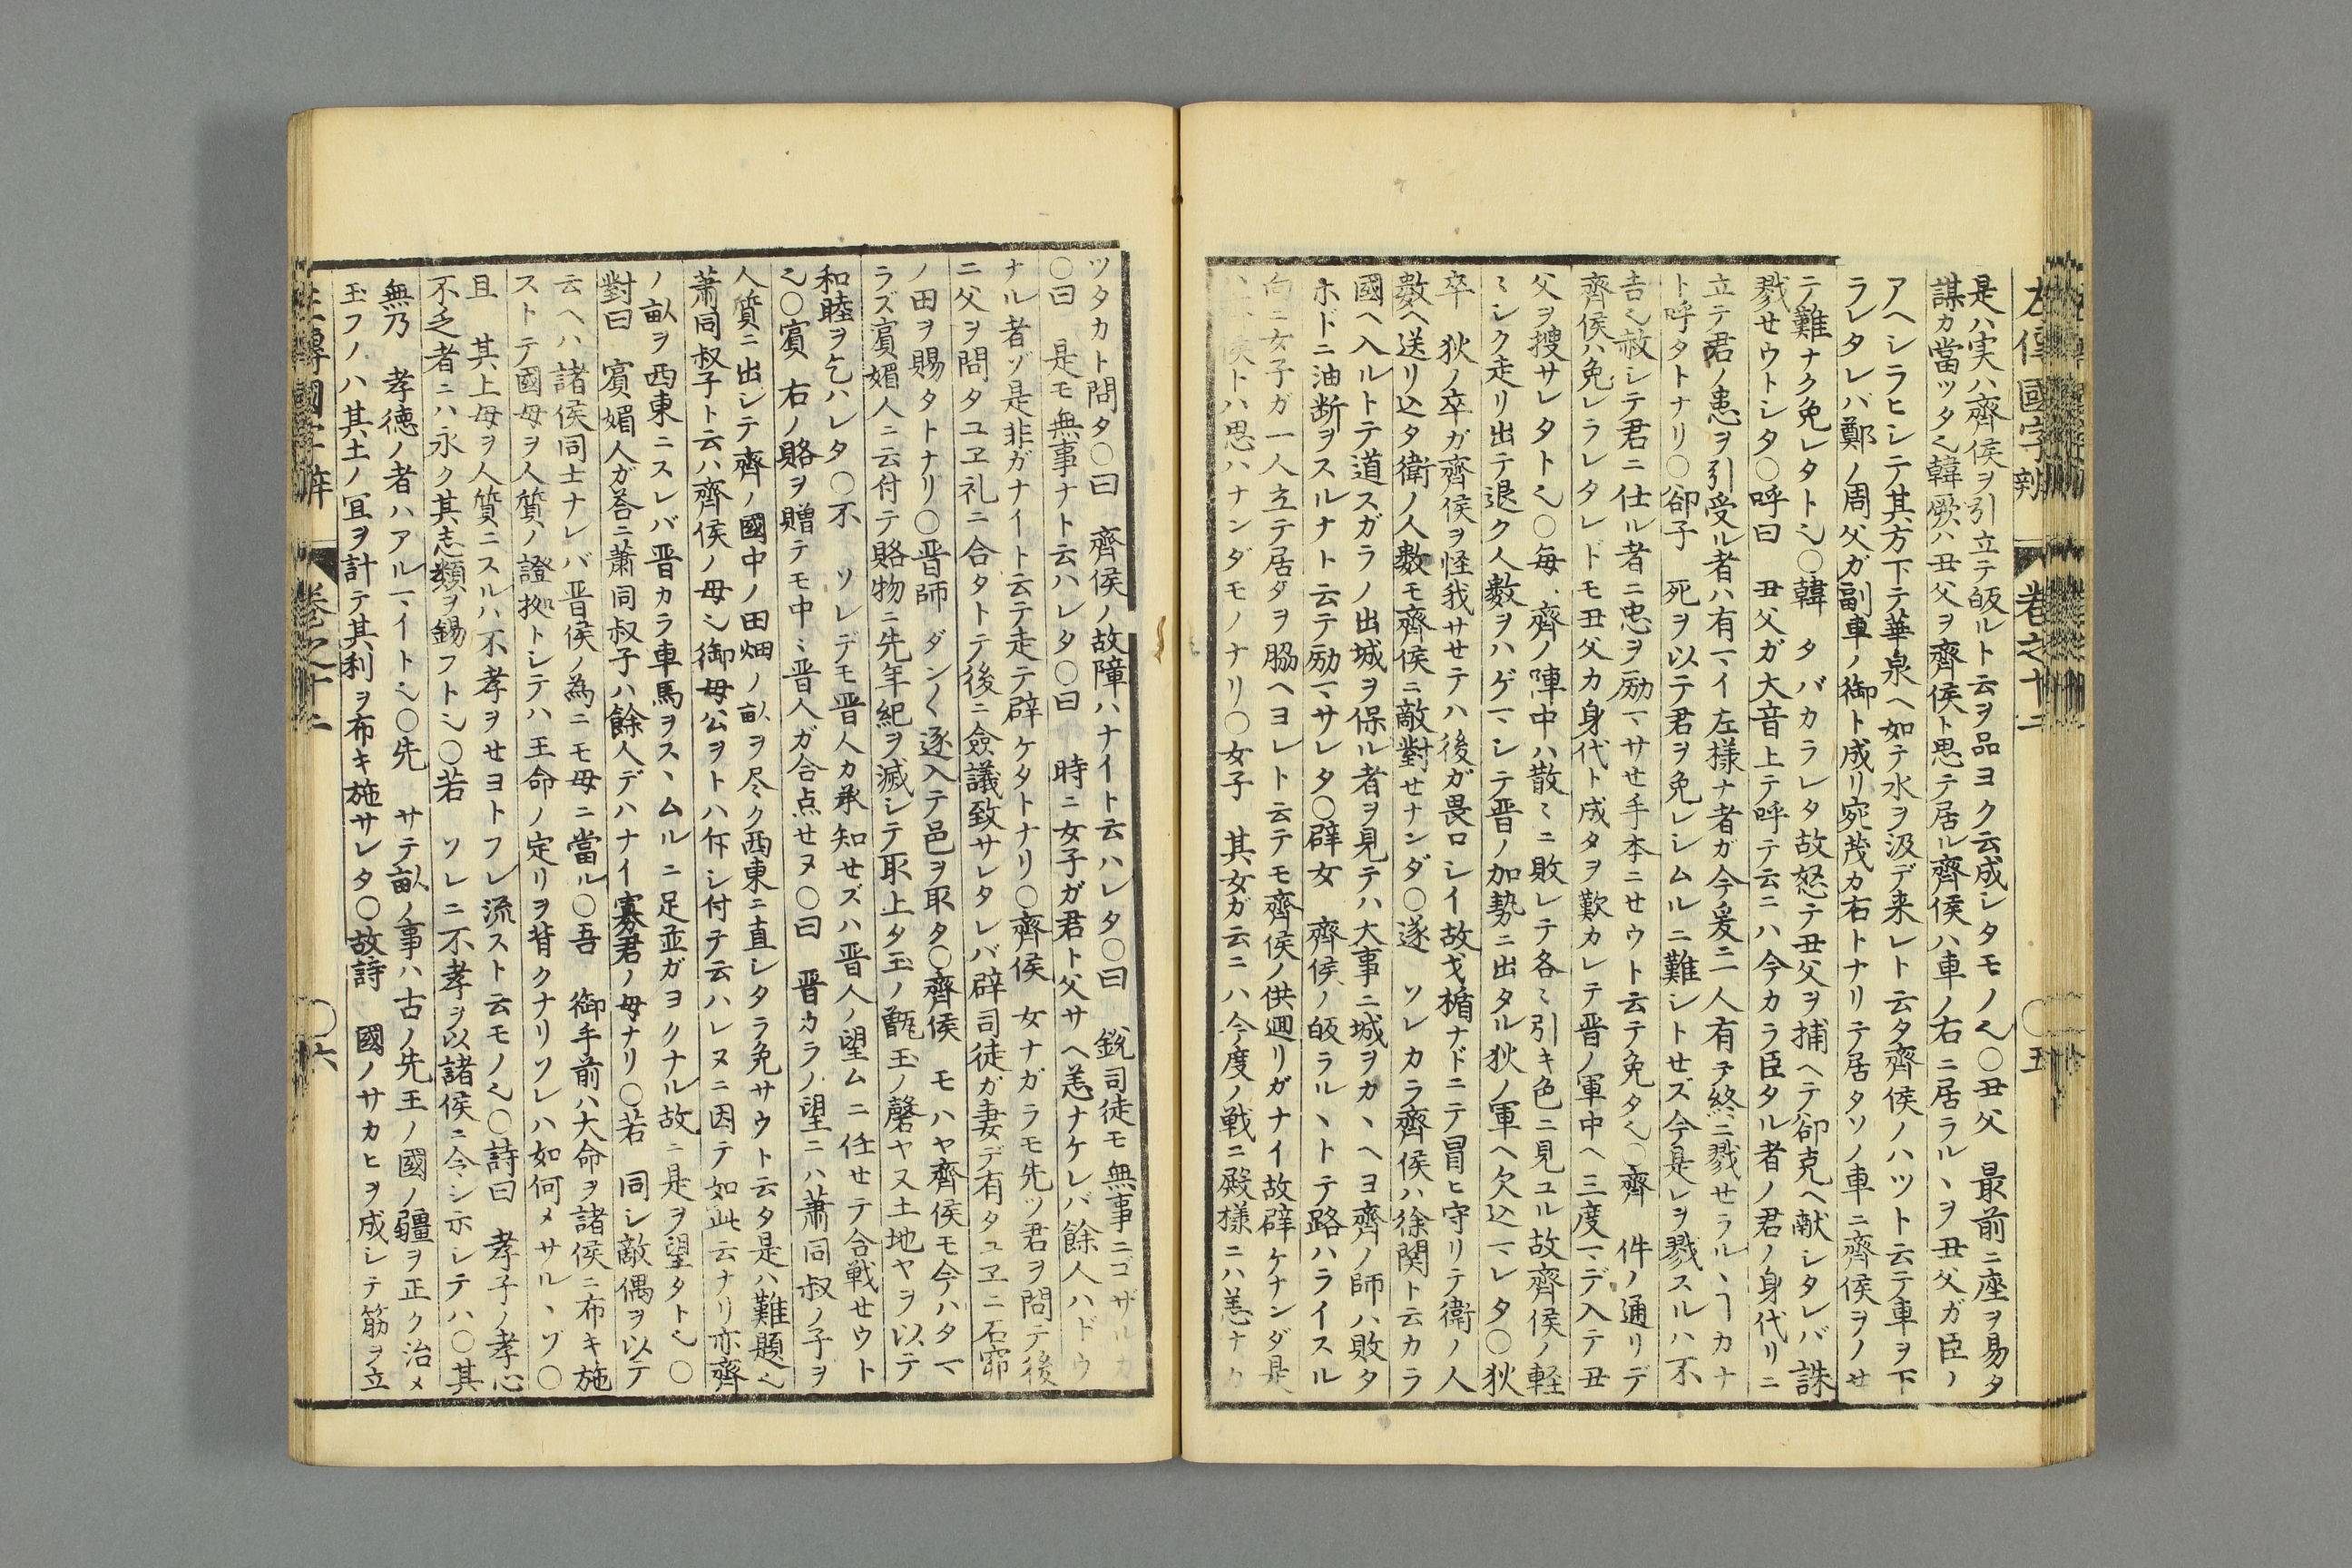 左傳國字辨 卷之十二 〇五
是ハ実ハ齊侯ヲ引立テ皈ルト云ヲ品ヨク云成シタモノ也〇丑父 最前ニ座ヲ易タ
謀カ當ツタ也韓厥ハ丑父ヲ齊侯ト思テ居ル齊侯ハ車ノ右ニ居ラルヽヲ丑父ガ臣ノ
アヘシラヒシテ其方下テ華泉ヘ如テ水ヲ汲デ来レト云タ齊侯ノハツト云テ車ヲ下
ラレタレバ鄭ノ周父ガ副車ノ御ト成リ宛茂カ右トナリテ居タソノ車ニ齊侯ヲノセ
テ難ナク免レタト也〇韓 タバカラレタ故怒テ丑父ヲ捕ヘテ郤克ヘ献シタレバ誅
戮セウトシタ〇呼曰 丑父ガ大音上テ呼テ云ニハ今カラ臣タル者ノ君ノ身代リニ
立テ君ノ患ヲ引受ル者ハ有マイ左様ナ者ガ今爰ニ一人有テ終ニ戮セラルヽヿカナ
ト呼タトナリ〇郤子 死ヲ以テ君ヲ免レシムルニ難シトセズ今是レヲ戮スルハ不
吉也赦シテ君ニ仕ル者ニ忠ヲ励マサセ手本ニセウト云テ免タ也〇齊 件ノ通リデ
齊侯ハ免レラレタレドモ丑父カ身代ト成タヲ歎カレテ晋ノ軍中ヘ三度マデ入テ丑
父ヲ捜サレタト也〇毎 齊ノ陣中ハ散ミニ敗レテ各ミ引キ色ニ見ユル故齊侯ノ軽
ミシク走リ出テ退ク人數ヲハゲマシテ晋ノ加勢ニ出タル狄ノ軍ヘ欠込マレタ〇狄
卒 狄ノ卒ガ齊侯ヲ怪我サセテハ後ガ畏ロシイ故戈楯ナドニテ冒ヒ守リテ衛ノ人
數ヘ送リ込タ衛ノ人數モ齊侯ニ敵對セナンダ〇遂 ソレカラ齊侯ハ徐関ト云カラ
國ヘ入ルトテ道スガラノ出城ヲ保ル者ヲ見テハ大事ニ城ヲカヽヘヨ齊ノ師ハ敗タ
ホドニ油断ヲスルナト云テ励マサレタ〇辟女 齊侯ノ皈ラルヽトテ路ハライスル
向ニ女子ガ一人立テ居タヲ脇ヘヨレト云テモ齊侯ノ供廻リガナイ故辟ケナンダ是
侯トハ思ハナンダモノナリ〇女子 其女ガ云ニハ今度ノ戦ニ殿様ニハ恙ナカ
ツタカト問タ〇曰 齊侯ノ故障ハナイト云ハレタ〇曰 銳司徒モ無事ニゴザルカ
〇曰 是モ無事ナト云ハレタ〇曰 時ニ女子ガ君ト父サヘ恙ナケレバ餘人ハドウ
ナル者ゾ是非ガナイト云テ走テ辟ケタトナリ〇齊侯 女ナガラモ先ツ君ヲ問テ後
ニ父ヲ問タユヱ礼ニ合タトテ後ニ僉議致サレタレバ辟司徒ガ妻デ有タユヱニ石窌
ノ田ヲ賜タトナリ〇晋師 ダン〱逐入テ邑ヲ取タ〇齊侯 モハヤ齊侯モ今ハタマ
ラズ賓媚人ニ云付テ賂物ニ先年紀ヲ滅シテ取上タ玉ノ甗玉ノ磬ヤ又土地ヤヲ以テ
和睦ヲ乞ハレタ〇不 ソレデモ晋人カ承知セズハ晋人ノ望ムニ任セテ合戦セウト
也〇賓 右ノ賂ヲ贈テモ中ミ晋人ガ合点セヌ〇曰 晋カラノ望ニハ蕭同叔ノ子ヲ
人質ニ出シテ齊ノ國中ノ田畑ノ畝ヲ尽ク西東ニ直シタラ免サウト云タ是ハ難題也
蕭同叔子ト云ハ齊侯ノ母也御母公ヲトハ斥シ付テ云ハレヌニ因テ如此云ナリ亦齊
ノ畝ヲ西東ニスレバ晋カラ車馬ヲスヽムルニ足並ガヨクナル故ニ是ヲ望タト也〇
對曰 賓媚人ガ荅ニ蕭同叔子ハ餘人デハナイ寡君ノ母ナリ〇若 同シ敵偶ヲ以テ
云ヘハ諸侯同士ナレバ晋侯ノ為ニモ母ニ當ル〇吾 御手前ハ大命ヲ諸侯ニ布キ施
ストテ國母ヲ人質ノ證拠トシテハ王命ノ定リヲ背クナリソレハ如何メサルヽゾ〇
且 其上母ヲ人質ニスルハ不孝ヲセヨトフレ流スト云モノ也〇詩曰 孝子ノ孝心
不乏者ニハ永ク其志類ヲ錫フト也〇若 ソレニ不孝ヲ以諸侯ニ令シ示シテハ〇其
無乃 孝徳ノ者ハアルマイト也〇先 サテ畝ノ事ハ古ノ先王ノ國ノ疆ヲ正ク治メ
玉フノハ其土ノ冝ヲ計テ其利ヲ布キ施サレタ〇故詩 國ノサカヒヲ成シテ筋ヲ立
左傳國字辨 卷之十二 〇六